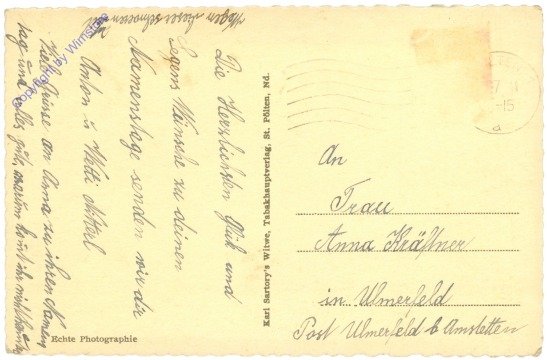 Die Herzlichsten Glük und
Segens Wünsche zu deinen
Namenstage senden wir dir
Anton u. Wetti
viele Grüsse an Anna zu ihren Namens
tag und alles gute, warum komt ihr nicht
Wegen
Copyright by Wimstore
Echte Photographie
Karl Sartory's Witwe, Tabakhauptverlag, St. Pölten, Nd.
7
-15
a
An
Frau
Anna Kräftner
in Ulmerfeld
Post Ulmerfeld b Amstetten